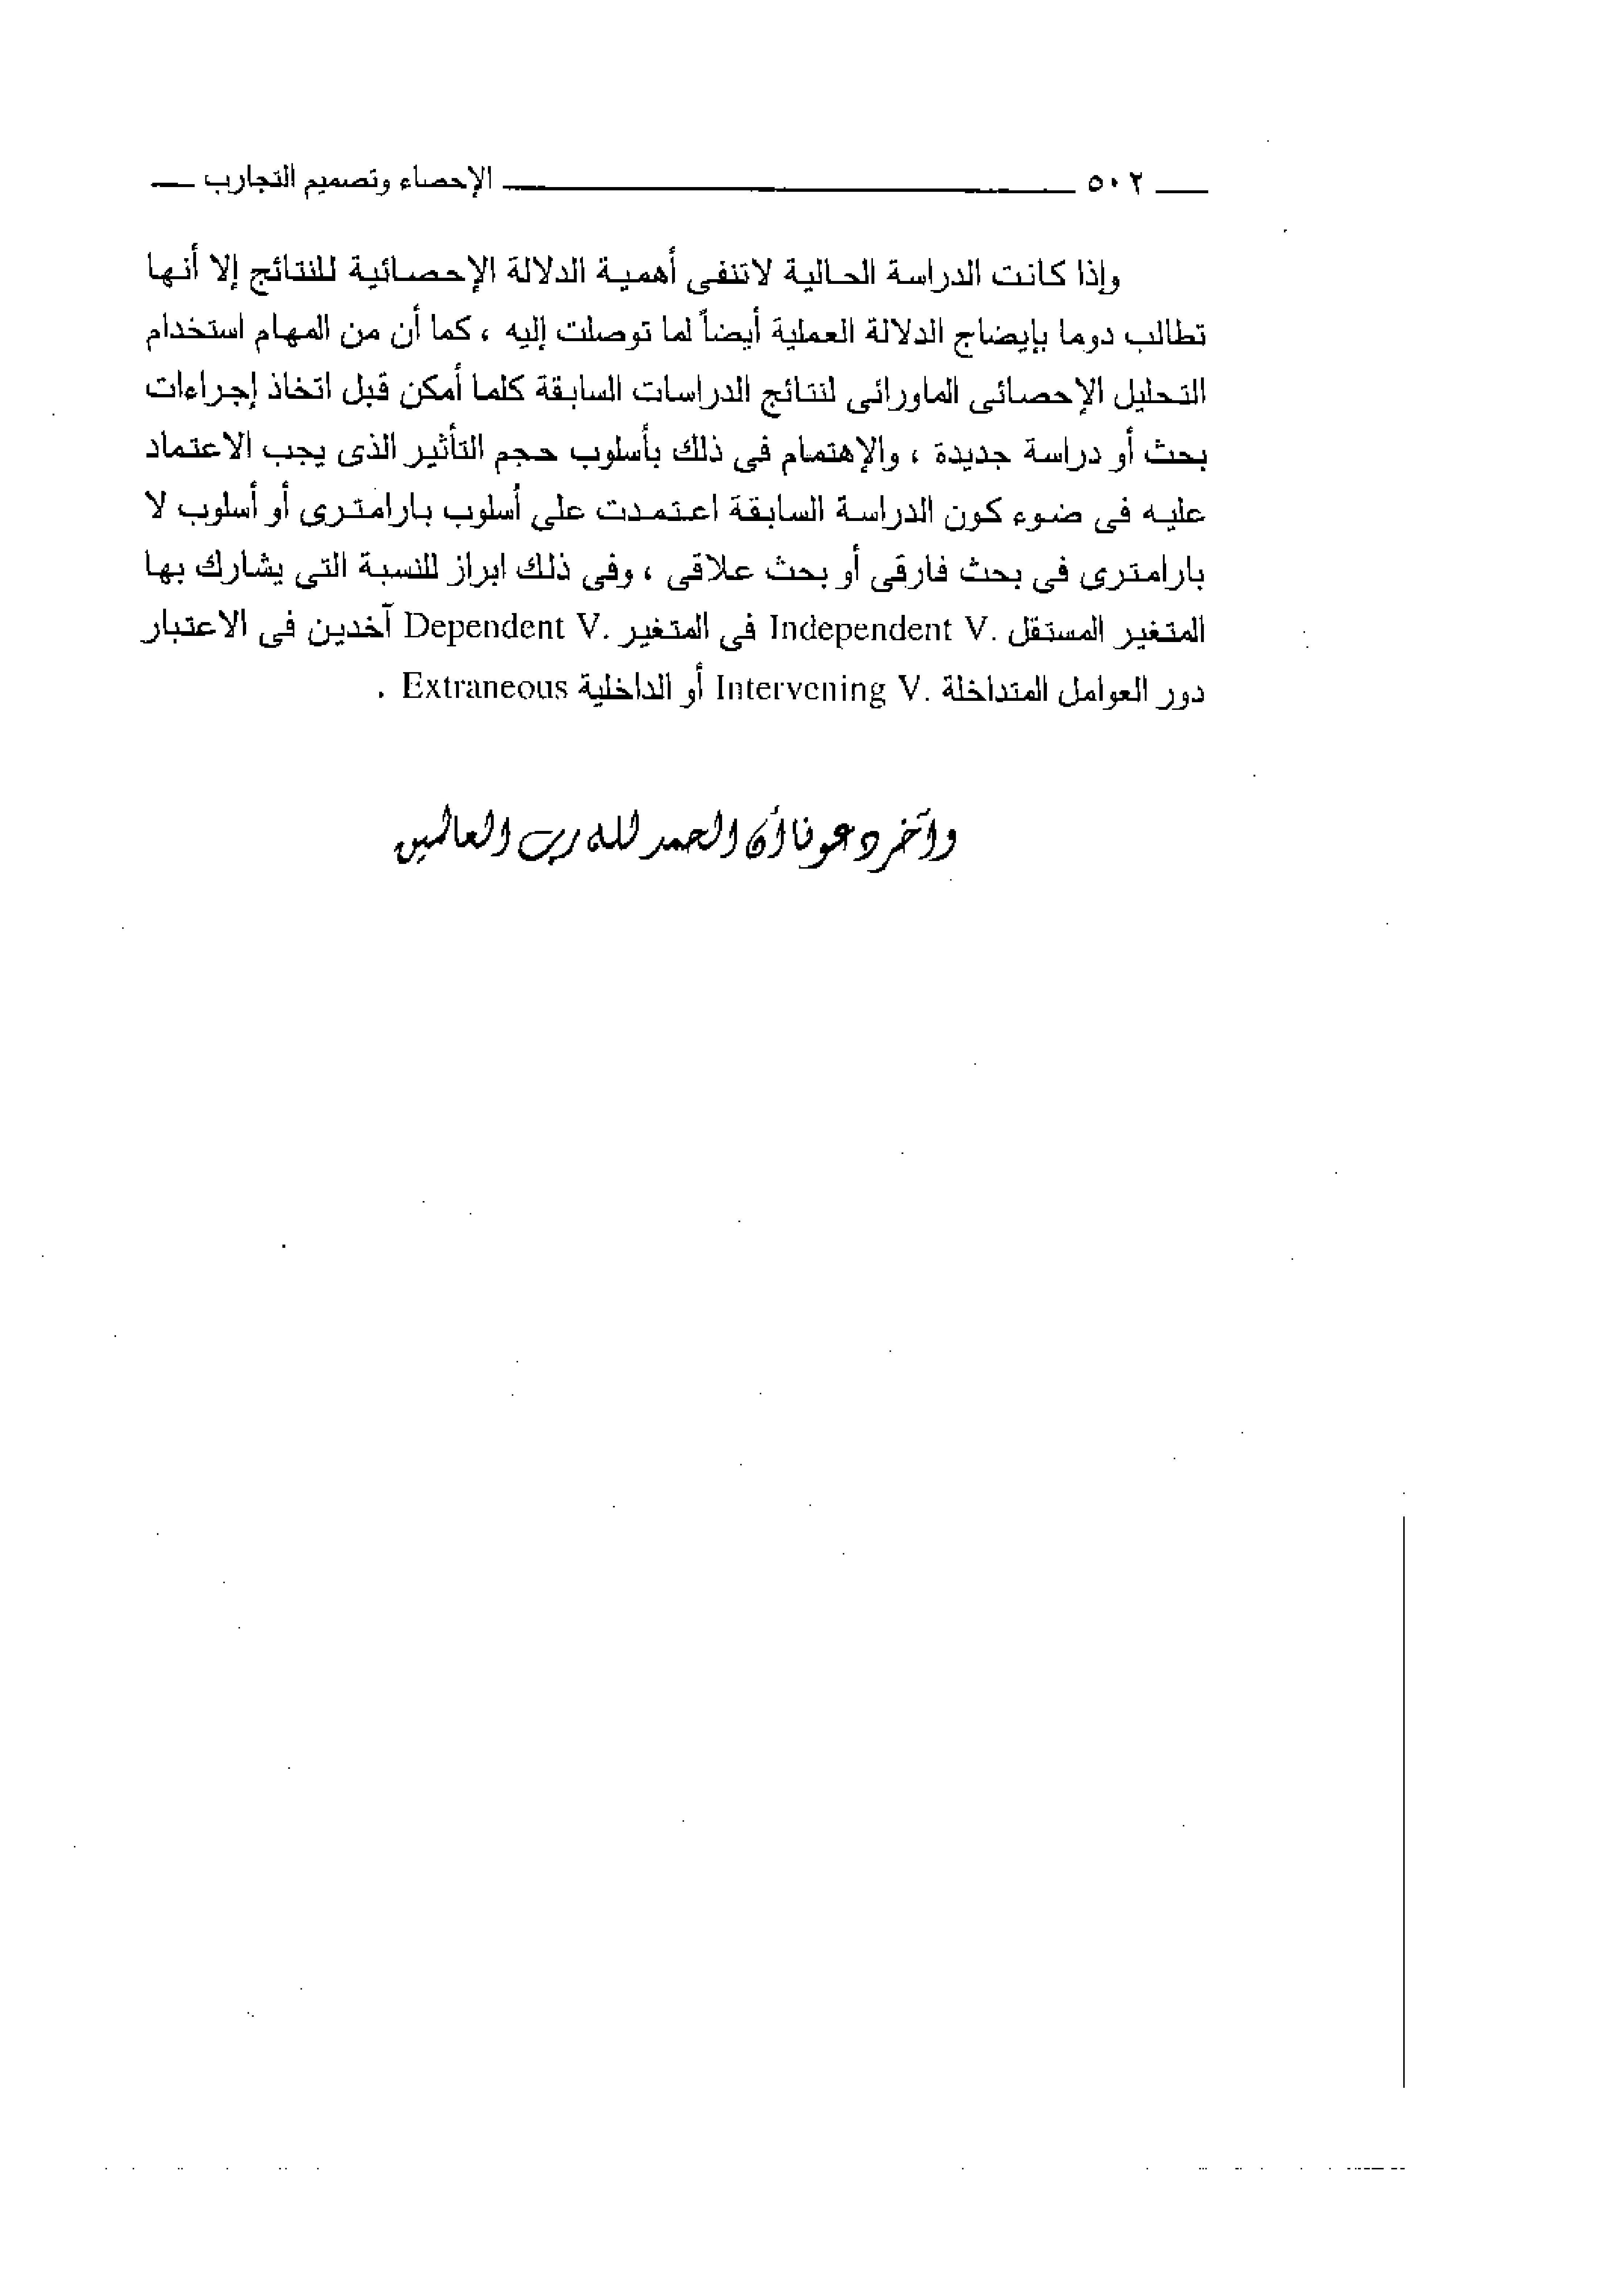 ٥٠٢ الإحصاء وتصميم التجارب
وإذا كانت الدراسة الحالية لاتنفى أهمية الدلالة الإحصائية للنتائج إلا أنها
تطالب دوما بإيضاج الدلالة العملية أيضاً لما توصلت إليه ، كما أن من المهام استخدام
التحليل الإحصائى الماورائى لنتائج الدراسات السابقة كلما أمكن قبل اتخاذ إجراءات
بحث أو دراسة جديدة ، والإهتمام فى ذلك بأسلوب حجم التأثير الذى يجب الاعتماد
عليه فى ضوء كون الدراسة السابقة اعتمدت على أسلوب بارامترى أو أسلوب لا
بارامترى فى بحث فارقى أو بحث علاقى ، وفى ذلك ابراز للنسبة التى يشارك بها
المتغير المستقل Independent V. فى المتغير Dependent V. آخدين فى الاعتبار
دور العوامل المتداخلة Intervening V. أو الداخلية Extraneous .
وآخر دعونا أن الحمد لله رب العالمين